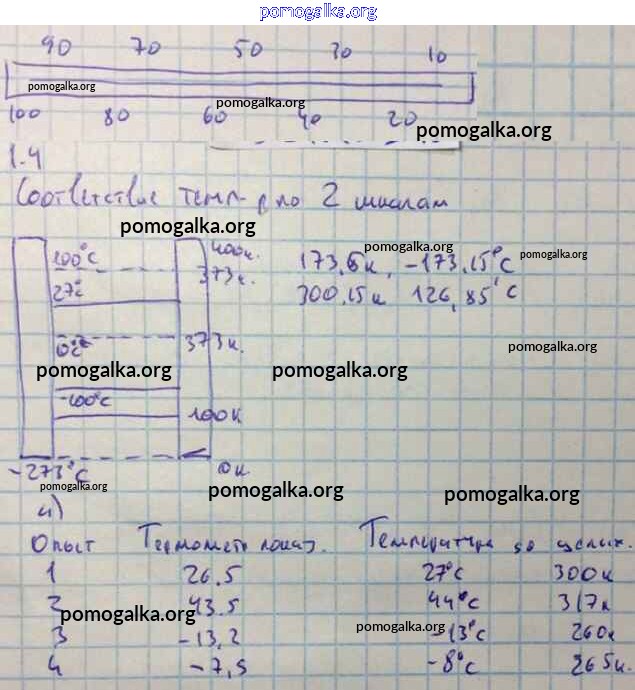 pomogalka.org
90 70 50 30 10
pomogalka.org
pomogalka.org
100 80 60 40 20
pomogalka.org
1.4
Соответствие темп-р по 2 шкалам
pomogalka.org
100°C 400к. 173,15к, -173,15°C
pomogalka.org pomogalka.org
373к.
27° 300,15к 126,85°C
0° 373к.
pomogalka.org
pomogalka.org pomogalka.org
-100°C
100К
-273°C 0к
pomogalka.org
pomogalka.org pomogalka.org
Опыт Термометр показ. Температура до целых.
1 26.5 27°C 300к
2 43.5 44°C 317к
pomogalka.org
3 -13,2 -13°C 260к
pomogalka.org
4 -7,5 -8°C 265к.